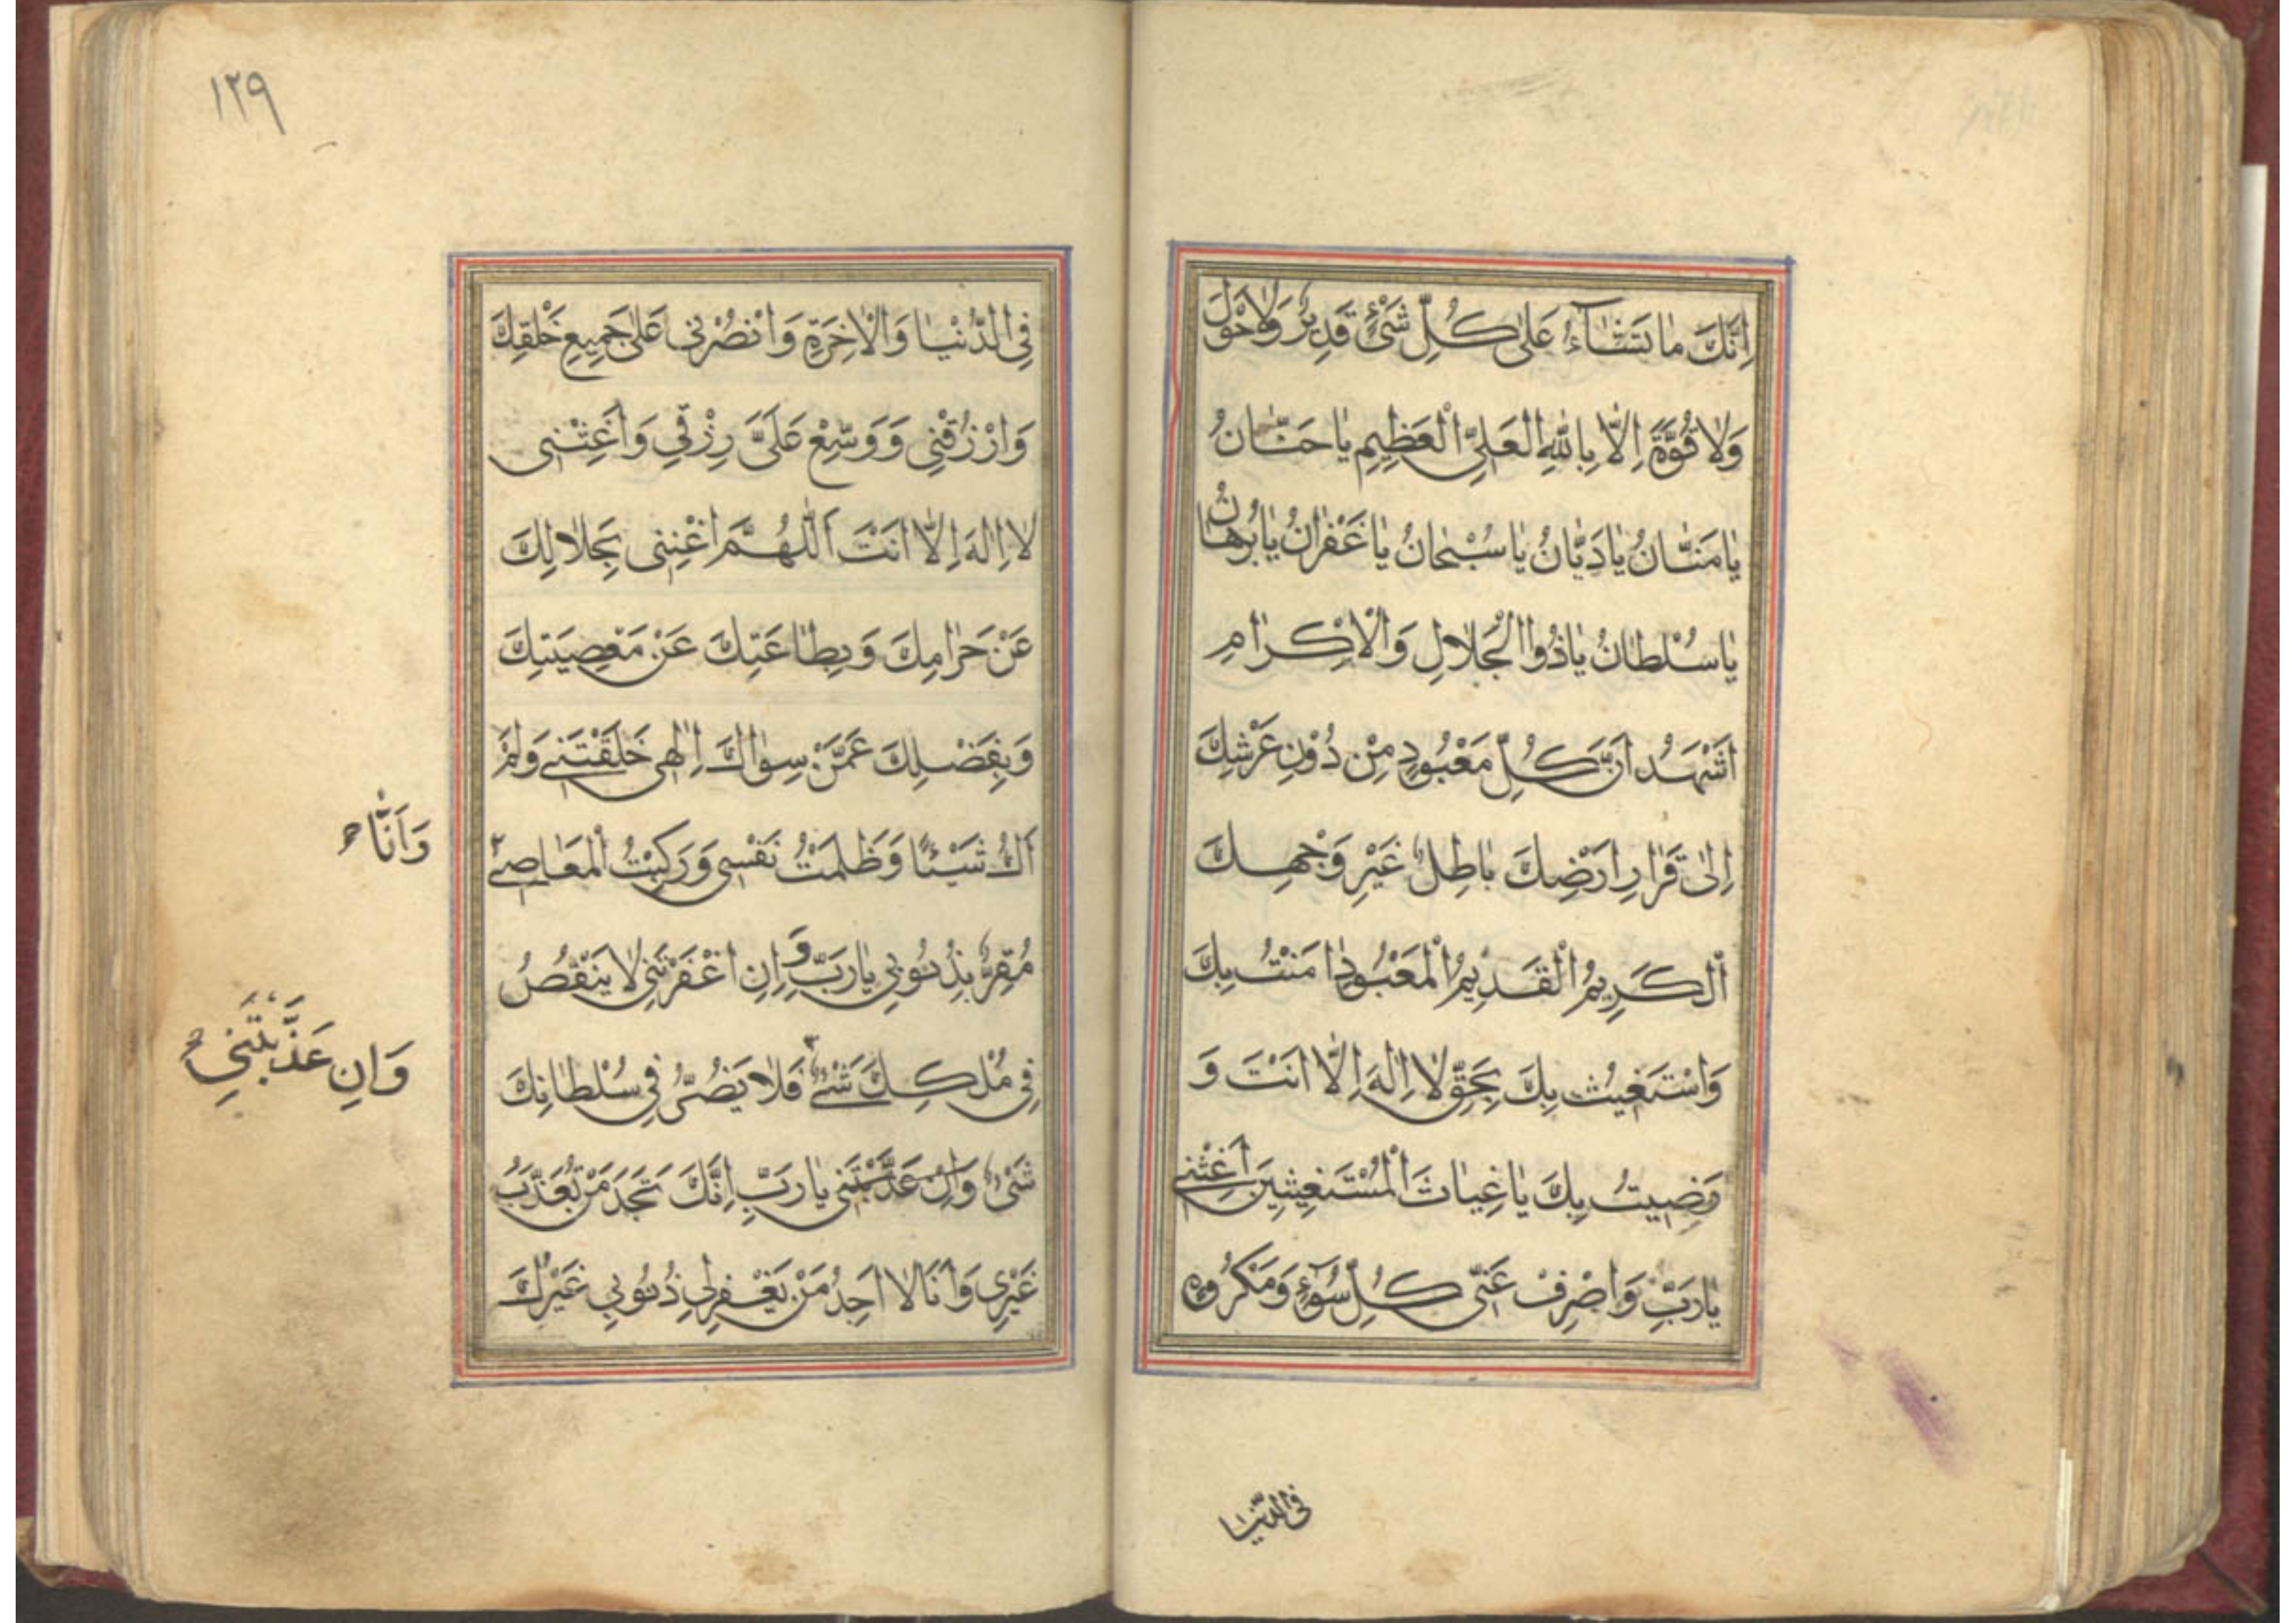 اِنَّكَ مٰا تَشٰآءُ عَلٰى كُلِّ شَیْئٍ قَدِيرٌ وَلٰا حَوْلَ
وَلٰا قُوَّةَ اِلّٰا بِاللّٰهِ الْعَلِىِّ الْعَظِيمِ يٰا حَنّٰانُ
يٰا مَنّٰانُ يٰا دَيّٰانُ يٰا سُبْحٰانُ يٰا غُفْرٰانُ يٰا بُرْهٰانُ
يٰا سُلْطٰانُ يٰا ذُوا الْجَلٰالِ وَالْاِكْرٰامِ
اَشْهَدُ اَنَّ كُلَّ مَعْبُودٍ مِنْ دُوْنِ عَرْشِكَ
اِلىٰ قَرٰارِ اَرْضِكَ بٰاطِلٌ غَيْرِ وَجْهِكَ
اَلْكَرِيمُ الْقَدِيمُ الْمَعْبُودِ اٰمَنْتُ بِكَ
وَاسْتَغِيثُ بِكَ بِحَقِّ لٰا اِلٰهَ اِلّٰا اَنْتَ وَ
رَضِيتُ بِكَ يٰا غِيٰاثَ الْمُسْتَغِيثِينَ اَغِثْنِى
يٰا رَبِّ وَاصْرِفْ عَنِّى كُلِّ سُوۤءٍ وَمَكْرُوهٍ
فى الدّنيا
١٢٩
فِى الدُّنْيٰا وَالْاٰخِرَةِ وَانْصُرْنِى عَلٰى جَمِيعِ خَلْقِكَ
وَارْزُقْنِى وَوَسِّعْ عَلَىَّ رِزْقِي وَاَغِثْنِى
لٰا اِلٰهَ اِلّٰا اَنْتَ اَللّٰهُمَّ اغْنِنِى بِحَلٰالِكَ
عَنْ حَرٰامِكَ وَبِطٰاعَتِكَ عَنْ مَعْصِيَتِكَ
وَبِفَضْلِكَ عَمَّنْ سِوٰاكَ اِلٰهِى خَلَقْتَنِى وَلَمْ
اَكُ شَيْئًا وَظَلَمْتُ نَفْسِى وَرَكِبْتُ الْمَعٰاصِى
وَاَنَا
مُقِرٌّ بِذُنُوبِي يٰا رَبِّ وَاِنِ اغْفَرْتَنِى لٰا يَنْقُصُ
فِى مُلْكِكَ شَىْءٌ فَلٰا يَضُرُّ فِى سُلْطٰانِكَ
وَاِنِ عَذَّبْتَنِى
شَىْءٌ وَاِنْ عَذَّبْتَنِى يٰا رَبِّ اِنَّكَ تَجِدَ مَنْ تُعَذِّبُ
غَيْرِى وَاَنَا لٰا اَجِدُ مَنْ يَغْفِرُ لِى ذُنُوبِي غَيْرُكَ